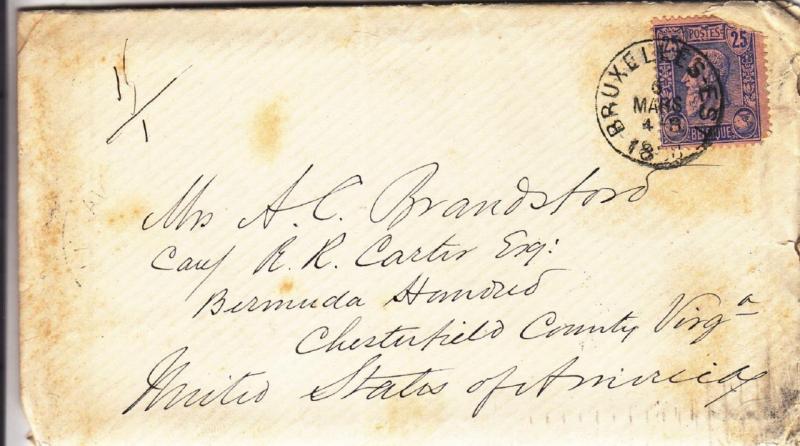 25 POSTES 25
BRUXELLES-EST
6
MARS
4
18
BELGIQUE
Mrs A. C. Brandsford
R. R. Carter Esq:
Bermuda Hundred
Chesterfield County Virgᵃ
United States of America